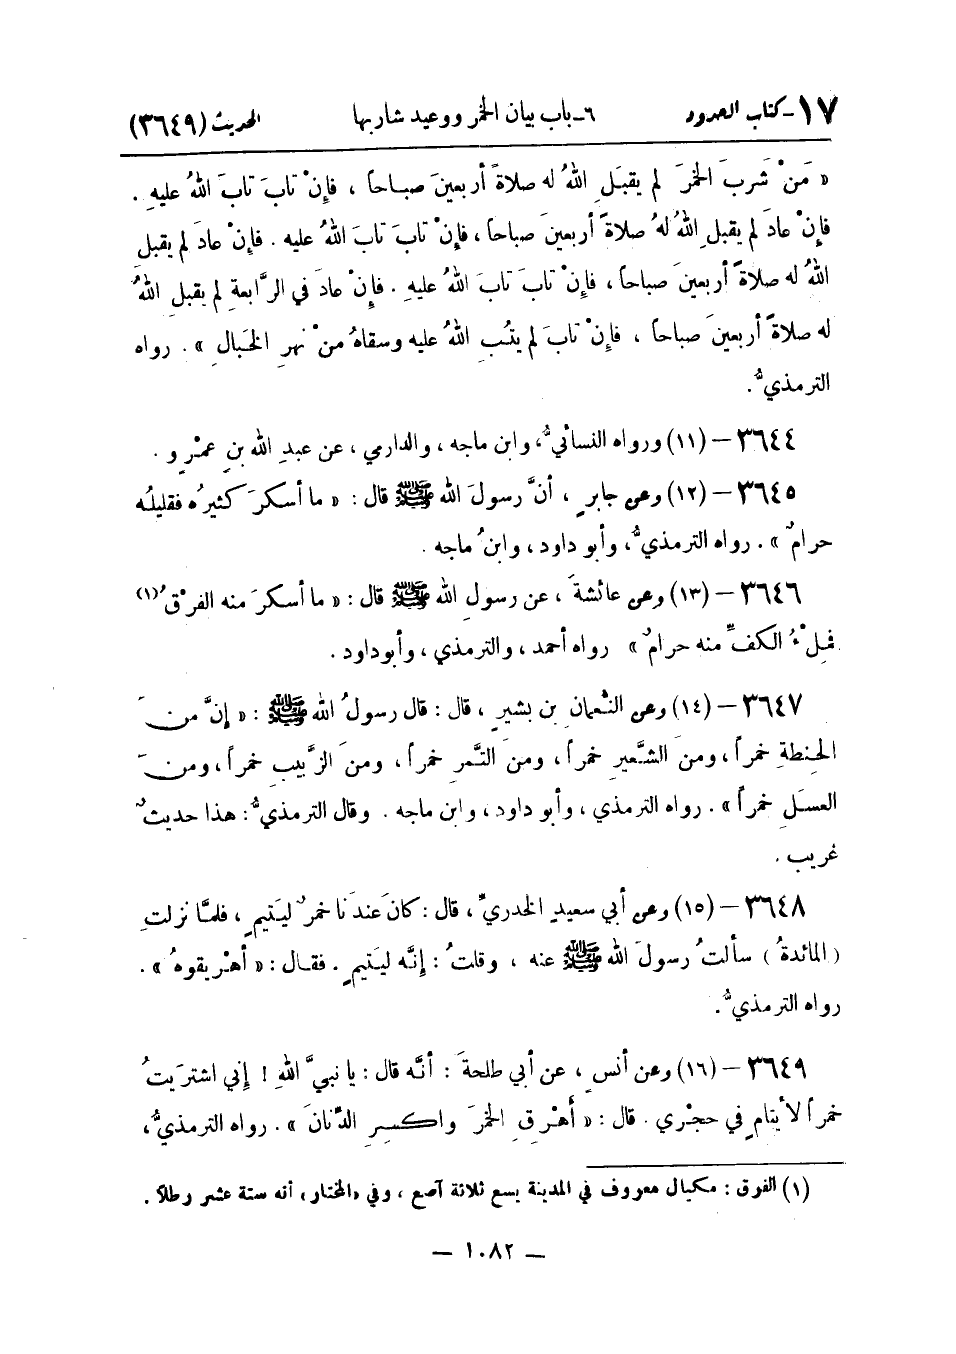 ١٧ـ كتاب الحدود ٦ـ باب بيان الخمر ووعيد شاربها الحديث (٣٦٤٩)
« مَنْ شَربَ الخمرَ لم يقبَلِ اللهُ له صلاةَ أربعينَ صباحاً ، فإنْ تابَ تابَ اللهُ عليهِ .
فإنْ عادَ لم يقبلِ اللهُ لهُ صلاةَ أربعينَ صباحاً ، فإنْ تابَ تابَ اللهُ عليه . فإنْ عادَ لم يقبلِ
اللهُ له صلاةَ أربعينَ صباحاً ، فإنْ تابَ تابَ اللهُ عليهِ . فإنْ عادَ في الرَّابعةِ لم يقبلِ اللهُ
له صلاةَ أربعينَ صباحاً ، فإنْ تابَ لم يتُبِ اللهُ عليه وسقاهُ منْ نهرِ الخَبالِ » . رواه
الترمذيُّ .
٣٦٤٤ – (١١) ورواه النسائيُّ ، وابن ماجه ، والدارمي ، عن عبدِ الله بنِ عمْرٍو .
٣٦٤٥ – (١٢) وعن جابرٍ ، أنَّ رسولَ الله ﷺ قال : « ما أسكرَ كثيرُه فقليلُه
حرامٌ » . رواه الترمذيُّ ، وأبو داود ، وابنُ ماجه .
٣٦٤٦ – (١٣) وعن عائشةَ ، عن رسولِ الله ﷺ قال : « ما أسكرَ منه الفرْقُ(١)
فمِلْءُ الكفِّ منه حرامٌ » رواه أحمد ، والترمذي ، وأبوداود .
٣٦٤٧ – (١٤) وعن النُّعمانِ بن بشيرٍ ، قال : قال رسولُ الله ﷺ : « إنَّ منَ
الحِنطةِ خمراً ، ومنَ الشَّعيرِ خمراً ، ومنَ التَّمرِ خمراً ، ومنَ الزَّبيبِ خمراً ، ومنَ
العسَلِ خمراً » . رواه الترمذي ، وأبو داود ، وابن ماجه . وقال الترمذيُّ : هذا حديثٌ
غريب .
٣٦٤٨ – (١٥) وعن أبي سعيدٍ الخدريِّ ، قال : كانَ عندَنا خمرٌ ليَتيمٍ ، فلمَّا نزلتِ
( المائدةُ ) سألتُ رسولَ الله ﷺ عنه ، وقلتُ : إنَّه ليَتيمٍ . فقال : « أهْريقوهُ » .
رواه الترمذيُّ .
٣٦٤٩ – (١٦) وعن أنسٍ ، عن أبي طلحةَ : أنَّه قال : يا نبيَّ اللهِ ! إني اشتريتُ
خمراً لأيتامٍ في حجْري . قال : « أَهْرِقِ الخمرَ واكسِرِ الدِّنانَ » . رواه الترمذيُّ ،
(١) الفرق : مكيال معروف في المدينة يسع ثلاثة آصع ، وفي «المختار» أنه ستة عشر رطلاً .
– ١٠٨٢ –